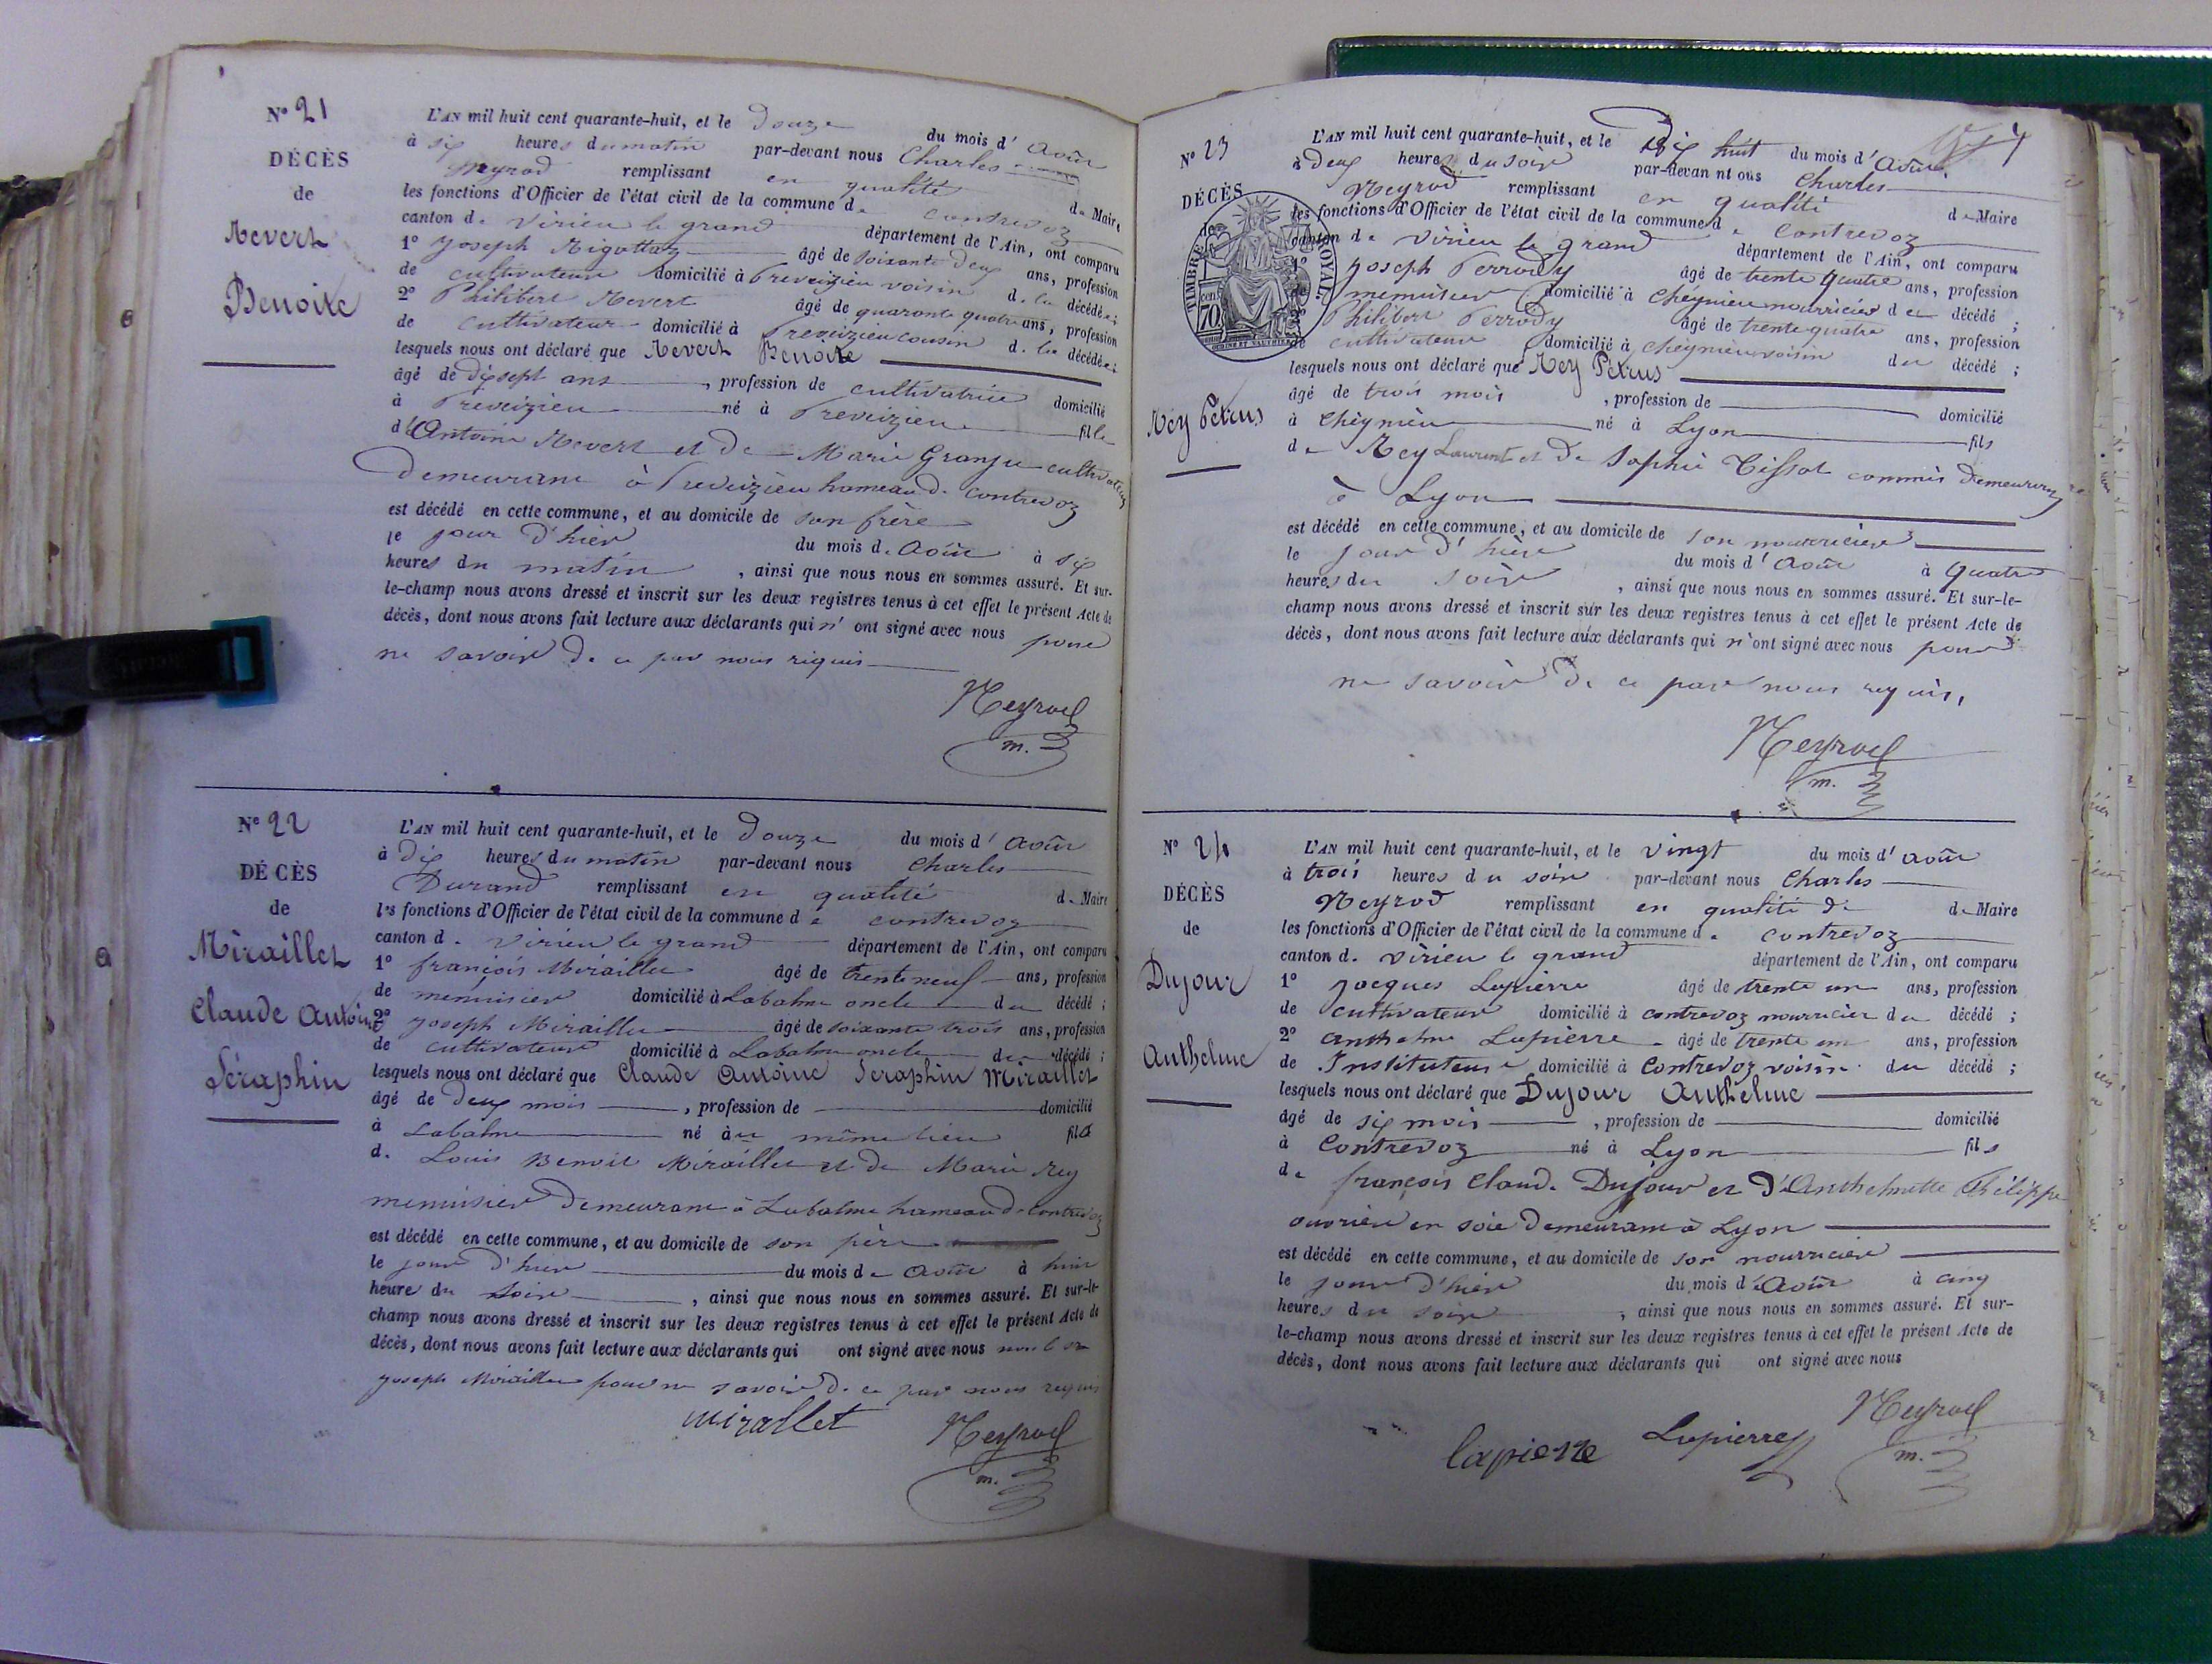 N° 21
DÉCÈS
de
Revert
Benoite
L'AN mil huit cent quarante-huit, et le douze du mois d'août
à six heures du matin par-devant nous Charles
Neyrod remplissant en qualité de Maire
les fonctions d'Officier de l'état civil de la commune de Contrevoz
canton de Virieu le grand département de l'Ain, ont comparu
1° Joseph Rigottaz âgé de soixante deux ans, profession
de cultivateur domicilié à Preveizieu voisin de la décédée ;
2° Philibert Revert âgé de quarante quatre ans, profession
de cultivateur domicilié à Preveizieu cousin de la décédée ;
lesquels nous ont déclaré que Revert Benoite
âgé de dix sept ans , profession de cultivatrice domicilié
à Preveizieu né à Preveizieu fille
d'Antoine Revert et de Marie Granju cultivateurs
demeurant à Preveizieu hameau de Contrevoz
est décédé en cette commune, et au domicile de son frère
le jour d'hier du mois d'août à six
heures du matin , ainsi que nous nous en sommes assuré. Et sur-
le-champ nous avons dressé et inscrit sur les deux registres tenus à cet effet le présent Acte de
décès, dont nous avons fait lecture aux déclarants qui n'ont signé avec nous pour
ne savoir de ce par nous requis
Neyrod
m.
N° 22
DÉCÈS
de
Miraillet
Claude Antoine
Séraphin
L'AN mil huit cent quarante-huit, et le douze du mois d'août
à dix heures du matin par-devant nous Charles
Durand remplissant en qualité de Maire
les fonctions d'Officier de l'état civil de la commune de Contrevoz
canton de Virieu le grand département de l'Ain, ont comparu
1° françois Miraillet âgé de trente neuf ans, profession
de menuisier domicilié à Labalme oncle du décédé ;
2° Joseph Miraillet âgé de soixante trois ans, profession
de cultivateur domicilié à Labalme oncle du décédé ;
lesquels nous ont déclaré que Claude Antoine Seraphin Miraillet
âgé de deux mois , profession de domicilié
à Labalme né au même lieu fils
de Louis Benoit Miraillet et de Marie Rey
menuisier demeurant à Labalme hameau de Contrevoz
est décédé en cette commune, et au domicile de son père
le jour d'hier du mois de août à huit
heure du soir , ainsi que nous nous en sommes assuré. Et sur-le-
champ nous avons dressé et inscrit sur les deux registres tenus à cet effet le présent Acte de
décès, dont nous avons fait lecture aux déclarants qui ont signé avec nous
Joseph Miraillet pour ne savoir de ce par nous requis
mirallet Neyrod
m.
N° 23
DÉCÈS
TIMBRE ROYAL
cen. 70
Rey Pétrus
L'AN mil huit cent quarante-huit, et le dix huit du mois d'août
à deux heures du soir par-devan nt ous Charles
Neyrod remplissant en qualité de Maire
les fonctions d'Officier de l'état civil de la commune de Contrevoz
canton de Virieu le grand département de l'Ain, ont comparu
1° Joseph Perrody âgé de trente quatre ans, profession
menuisier domicilié à Chégnieu nourricier du décédé ;
2° Philibert Perrody âgé de trente quatre ans, profession
de cultivateur domicilié à Chégnieu voisin du décédé ;
lesquels nous ont déclaré que Rey Pétrus
âgé de trois mois , profession de domicilié
à Chégnieu né à Lyon fils
de Rey Laurent et de Sophie Tissot commis demeurant
à Lyon
est décédé en cette commune, et au domicile de son nourricière
le jour d'hier du mois d'août à quatre
heures du soir , ainsi que nous nous en sommes assuré. Et sur-le-
champ nous avons dressé et inscrit sur les deux registres tenus à cet effet le présent Acte de
décès, dont nous avons fait lecture aux déclarants qui n'ont signé avec nous pour
ne savoir de ce par nous requis,
Neyrod
m.
N° 24
DÉCÈS
de
Dujour
Anthelme
L'AN mil huit cent quarante-huit, et le vingt du mois d'août
à trois heures du soir par-devant nous Charles
Neyrod remplissant en qualité de de Maire
les fonctions d'Officier de l'état civil de la commune de Contrevoz
canton de Virieu le grand département de l'Ain, ont comparu
1° Jacques Lapierre âgé de trente un ans, profession
de cultivateur domicilié à Contrevoz nourricier du décédé ;
2° anthelme Lapierre âgé de trente un ans, profession
de Instituteur domicilié à Contrevoz voisin du décédé ;
lesquels nous ont déclaré que Dujour Anthelme
âgé de six mois , profession de domicilié
à Contrevoz né à Lyon fils
de françois Claude Dujour et d'Anthelmette Philippe
ouvrier en soie demeurant à Lyon
est décédé en cette commune, et au domicile de son nourricière
le jour d'hier du mois d'août à cinq
heures du soir , ainsi que nous nous en sommes assuré. Et sur-
le-champ nous avons dressé et inscrit sur les deux registres tenus à cet effet le présent Acte de
décès, dont nous avons fait lecture aux déclarants qui ont signé avec nous
lapierre Lapierre Neyrod
m.